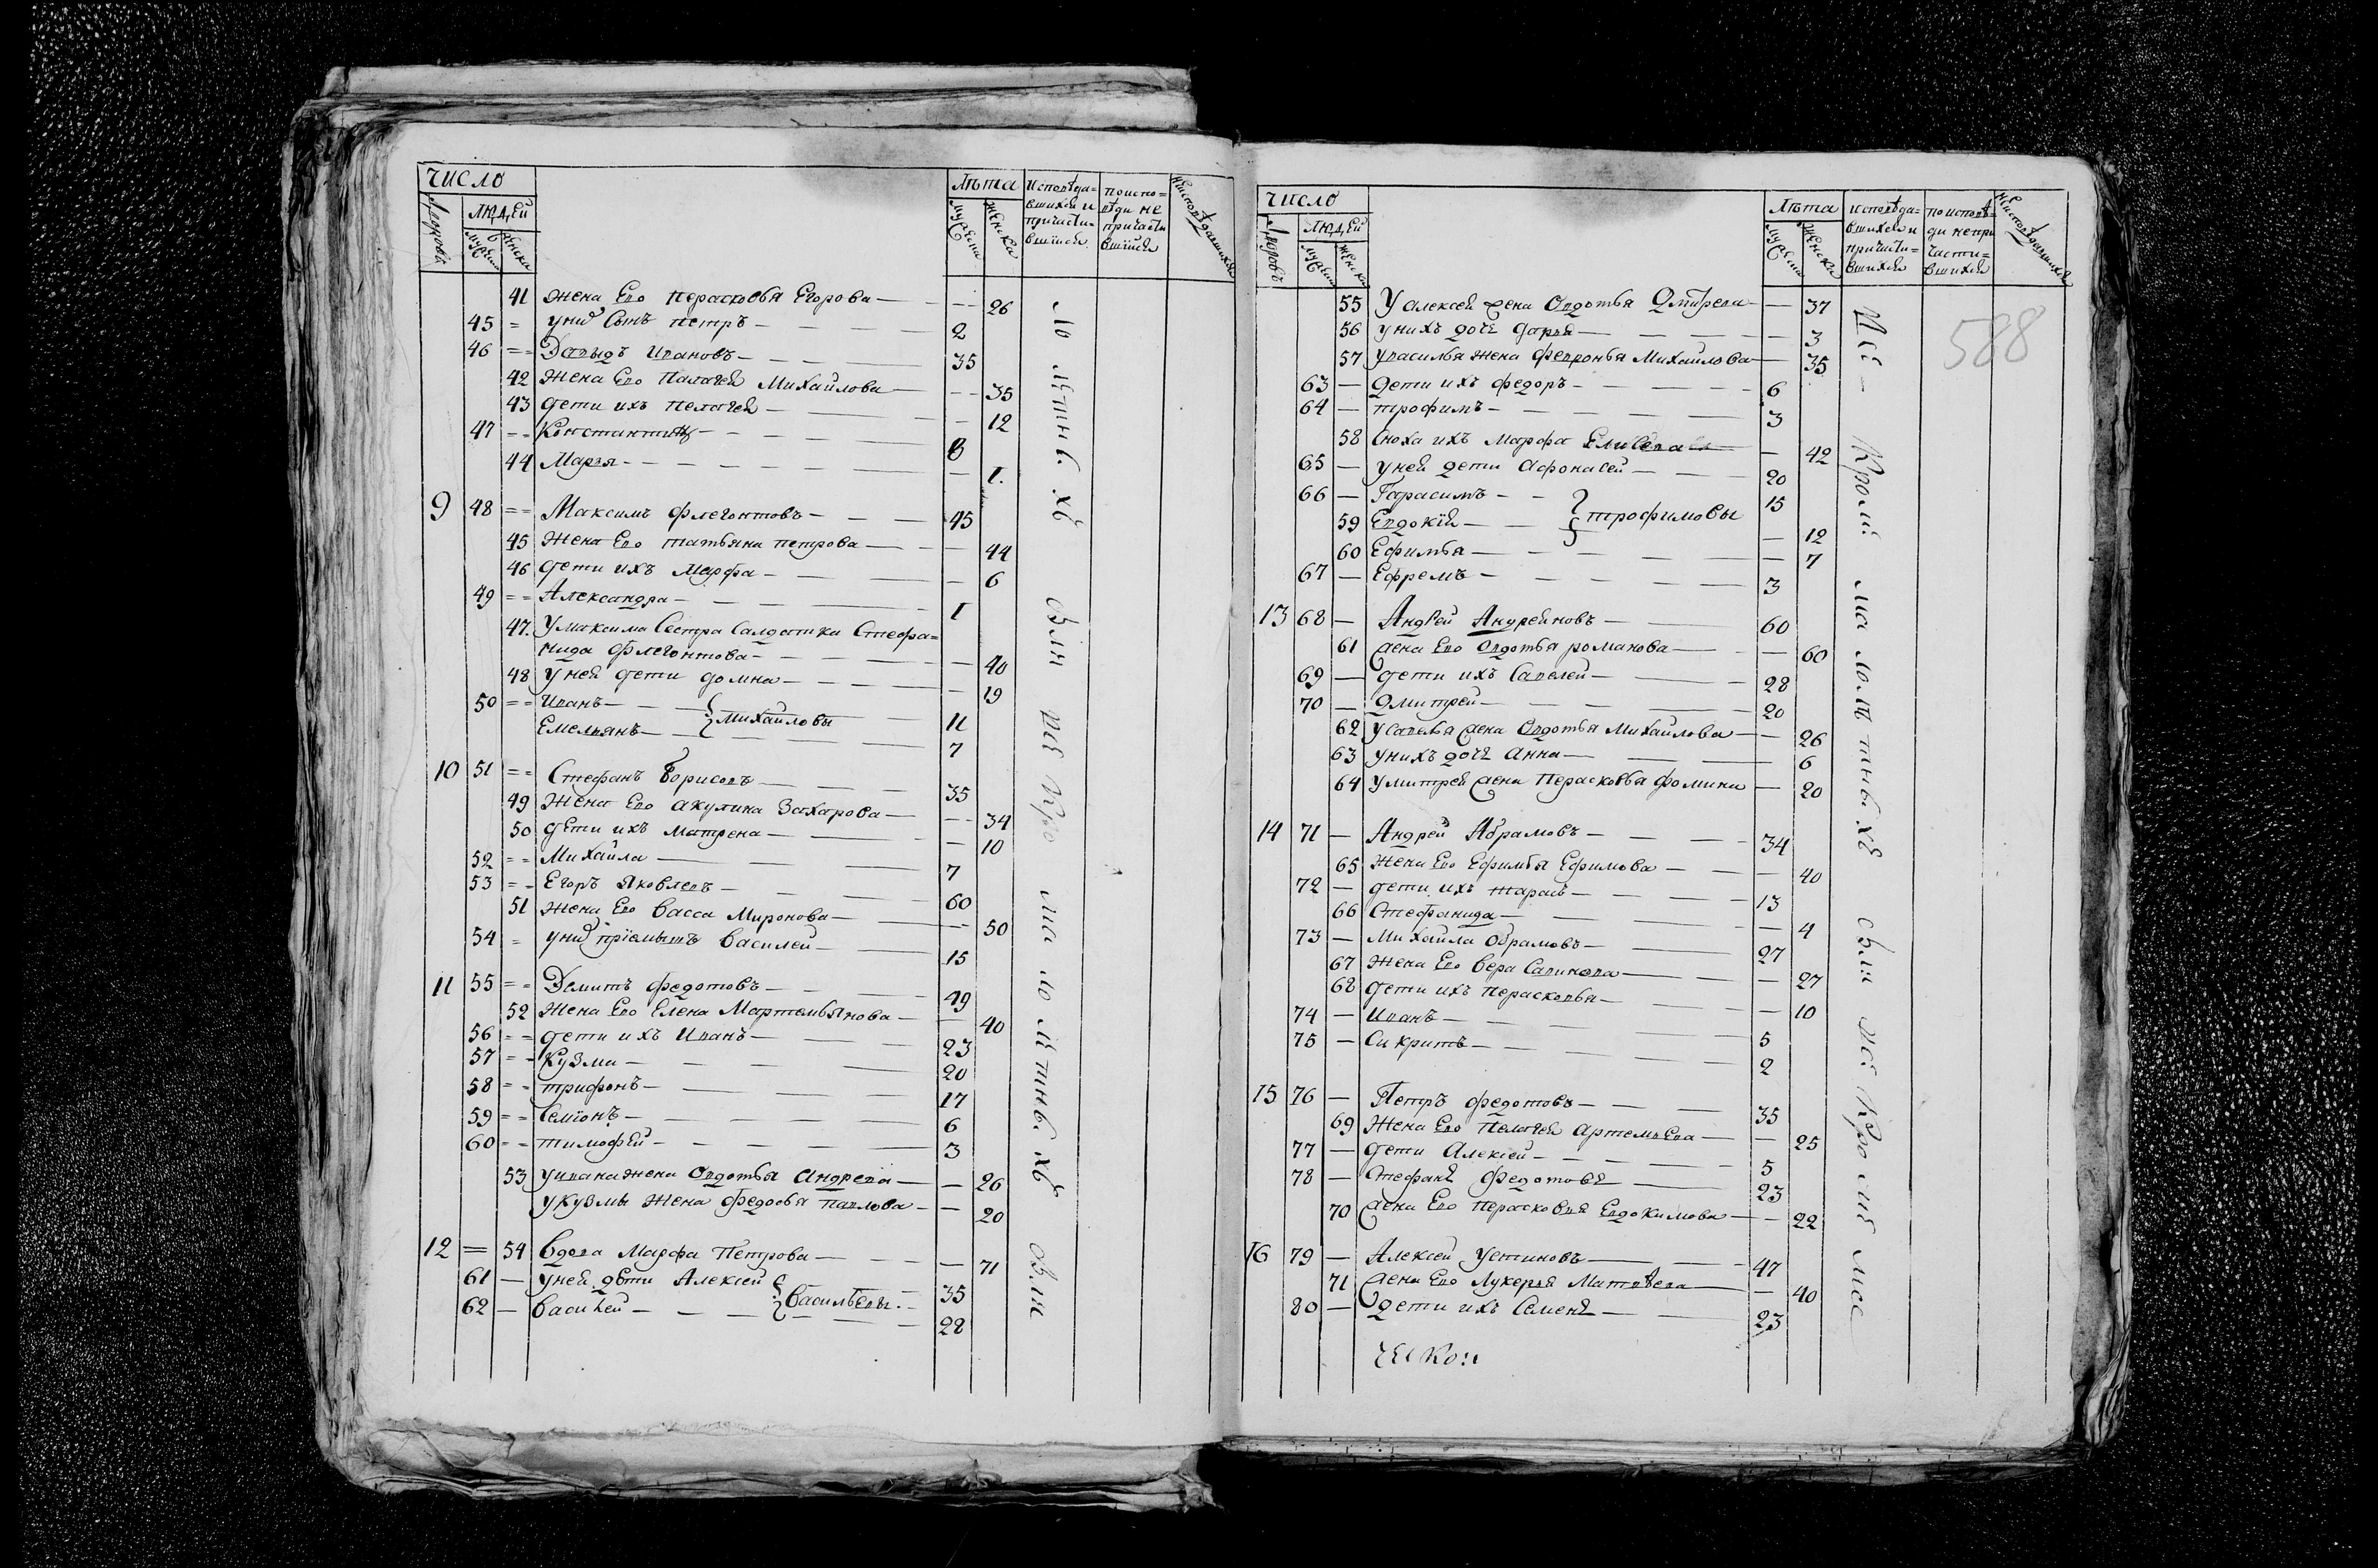 число
Лѣта
Исповѣда=
вшихся и
причасти=
вшихся
по испо=
вѣди не
причасти
вшихся
Неисповѣдавшихся
Дворовъ
людей
мужеска
женска
мужеска
женска
41 жена Ево Перасковья Егорова — 26
45 = у них Сынъ петръ — 2
46 == Давыдъ Ивановъ — 35
42 жена Ево Палагея Михайлова — 35
43 дети ихъ пелагея — 12
47 == Константинъ — 8
44 Марья — 1.
9 48 == Максимъ флегонтовъ — 45
45 жена Ево татьяна петрова — 44
46 дети ихъ Марфа — 6
49 == Александра — 1
47. У максима Сестра Салдатка Стефа=
нида флегонтова — 40
48 у ней дети домна — 19
50 == Иванъ — } Михайловы 11
Емельянъ — 7
10 51 == Стефанъ борисовъ — 35
49 жена Ево акулина Захарова — 34
50 дети ихъ матрена — 10
52 == Михайла — 7
53 == Егоръ Яковлевъ — 60
51 жена Ево васса Миронова — 50
54 = у них пріемышъ василей — 15
11 55 == Демитъ федотовъ — 49
52 жена Ево Елена Мартемьянова — 40
56 == дети ихъ Иванъ — 23
57 == Кузма — 20
58 == трифонъ — 17
59 == Семіонъ — 6
60 == тимофей — 3
53 у ивана жена Овдотья андрева — 26
у кузмы жена федосья павлова — 20
12 = 54 вдова Марфа Петрова — 71
61 — у ней дети Алексей } васильевы. 35
62 — василей — 28
Лю лѣтныхъ
всѣ Кроме
мало лѣтныхъ
число
Лѣта
исповѣда=
вшихся и
причасти=
вшихся
по исповѣ=
ди непри
части=
вшихся
Неисповѣдавшихся
Дворовъ
людей
мужеска
женска
мужеска
женска
588
55 У алексея жена Овдотья Дмитрева — 37
56 у нихъ дочь дарья — 3
57 у василья жена февронья Михайлова — 35
63 — дети ихъ федоръ — 6
64 — трофимъ — 3
58 Сноха ихъ марфа — 42
65 — у ней дети афонасей — 20
66 — Гарасимъ — } трофимовы 15
59 Евдокія — 12
60 Ефимья — 7
67 — Ефремъ — 3
13 68 — Андрей Андреяновъ — 60
61 жена Ево Овдотья романова — 60
69 — дети ихъ Савелей — 28
70 — Дмитрей — 20
62 у савелья жена Овдотья Михайлова — 26
63 у нихъ дочь анна — 6
64 у митрея жена Перасковья фомина — 20
14 71 — Андрей Абрамовъ — 34
65 жена Ево Ефимья Ефимова — 40
72 — дети ихъ тарасъ — 13
66 Стефанида — 4
73 — Михайла Обрамовъ — 27
67 жена Ево вера Савинова — 27
68 дети ихъ перасковья — 10
74 — Иванъ — 5
75 — — 2
15 76 — Петръ федотовъ — 35
69 жена Ево пелагея артемьева — 25
77 — дети Алексей — 5
78 — Стефанъ федотовъ — 23
70 жена Ево перасковья Евдокимова — 22
16 79 — Алексей Устиновъ — 47
71 жена Ево Лукерья Матвѣева — 40
80 — дети ихъ Семенъ — 23
Всѣ Кроме мало лѣтныхъ